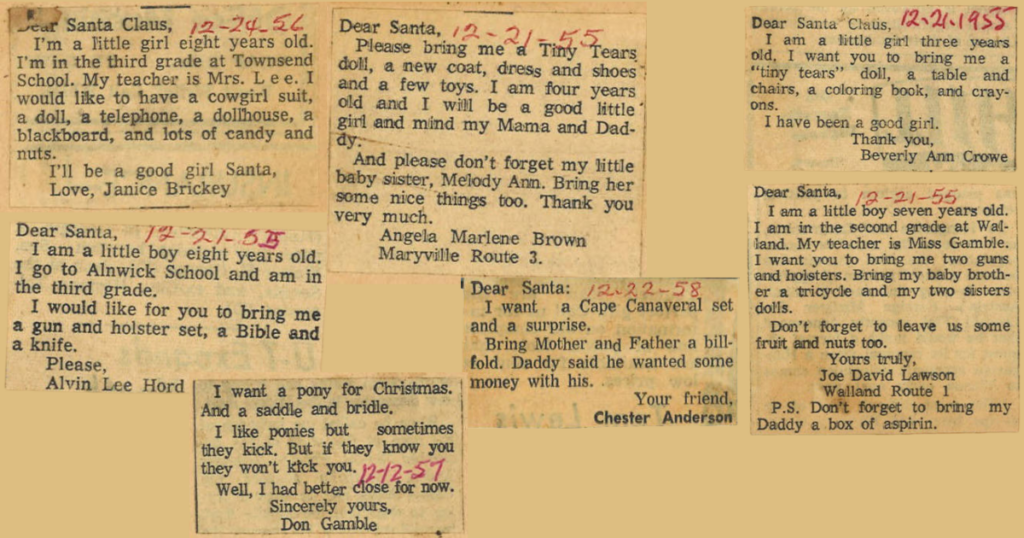 Dear Santa Claus, 12-24-56
I'm a little girl eight years old.
I'm in the third grade at Townsend
School. My teacher is Mrs. Lee. I
would like to have a cowgirl suit,
a doll, a telephone, a dollhouse, a
blackboard, and lots of candy and
nuts.
I'll be a good girl Santa,
Love, Janice Brickey
Dear Santa, 12-21-55
I am a little boy eight years old.
I go to Alnwick School and am in
the third grade.
I would like for you to bring me
a gun and holster set, a Bible and
a knife.
Please,
Alvin Lee Hord
I want a pony for Christmas.
And a saddle and bridle.
I like ponies but sometimes
they kick. But if they know you
they won't kick you. 12-12-57
Well, I had better close for now.
Sincerely yours,
Don Gamble
Dear Santa, 12-21-55
Please bring me a Tiny Tears
doll, a new coat, dress and shoes
and a few toys. I am four years
old and I will be a good little
girl and mind my Mama and Dad-
dy.
And please don't forget my little
baby sister, Melody Ann. Bring her
some nice things too. Thank you
very much.
Angela Marlene Brown
Maryville Route 3.
Dear Santa: 12-22-58
I want a Cape Canaveral set
and a surprise.
Bring Mother and Father a bill-
fold. Daddy said he wanted some
money with his.
Your friend,
Chester Anderson
Dear Santa Claus, 12-21-1955
I am a little girl three years
old, I want you to bring me a
"tiny tears" doll, a table and
chairs, a coloring book, and cray-
ons.
I have been a good girl.
Thank you,
Beverly Ann Crowe
Dear Santa, 12-21-55
I am a little boy seven years old.
I am in the second grade at Wal-
land. My teacher is Miss Gamble.
I want you to bring me two guns
and holsters. Bring my baby broth-
er a tricycle and my two sisters
dolls.
Don't forget to leave us some
fruit and nuts too.
Yours truly,
Joe David Lawson
Walland Route 1
P.S. Don't forget to bring my
Daddy a box of aspirin.